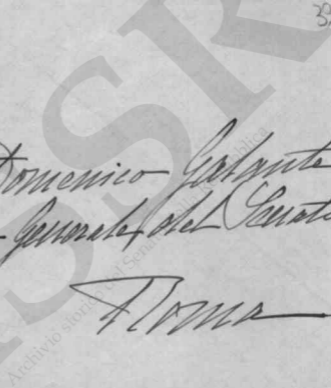 39
Domenico Galante
- Generale del Senato
Roma
Archivio storico del Senato della Repubblica